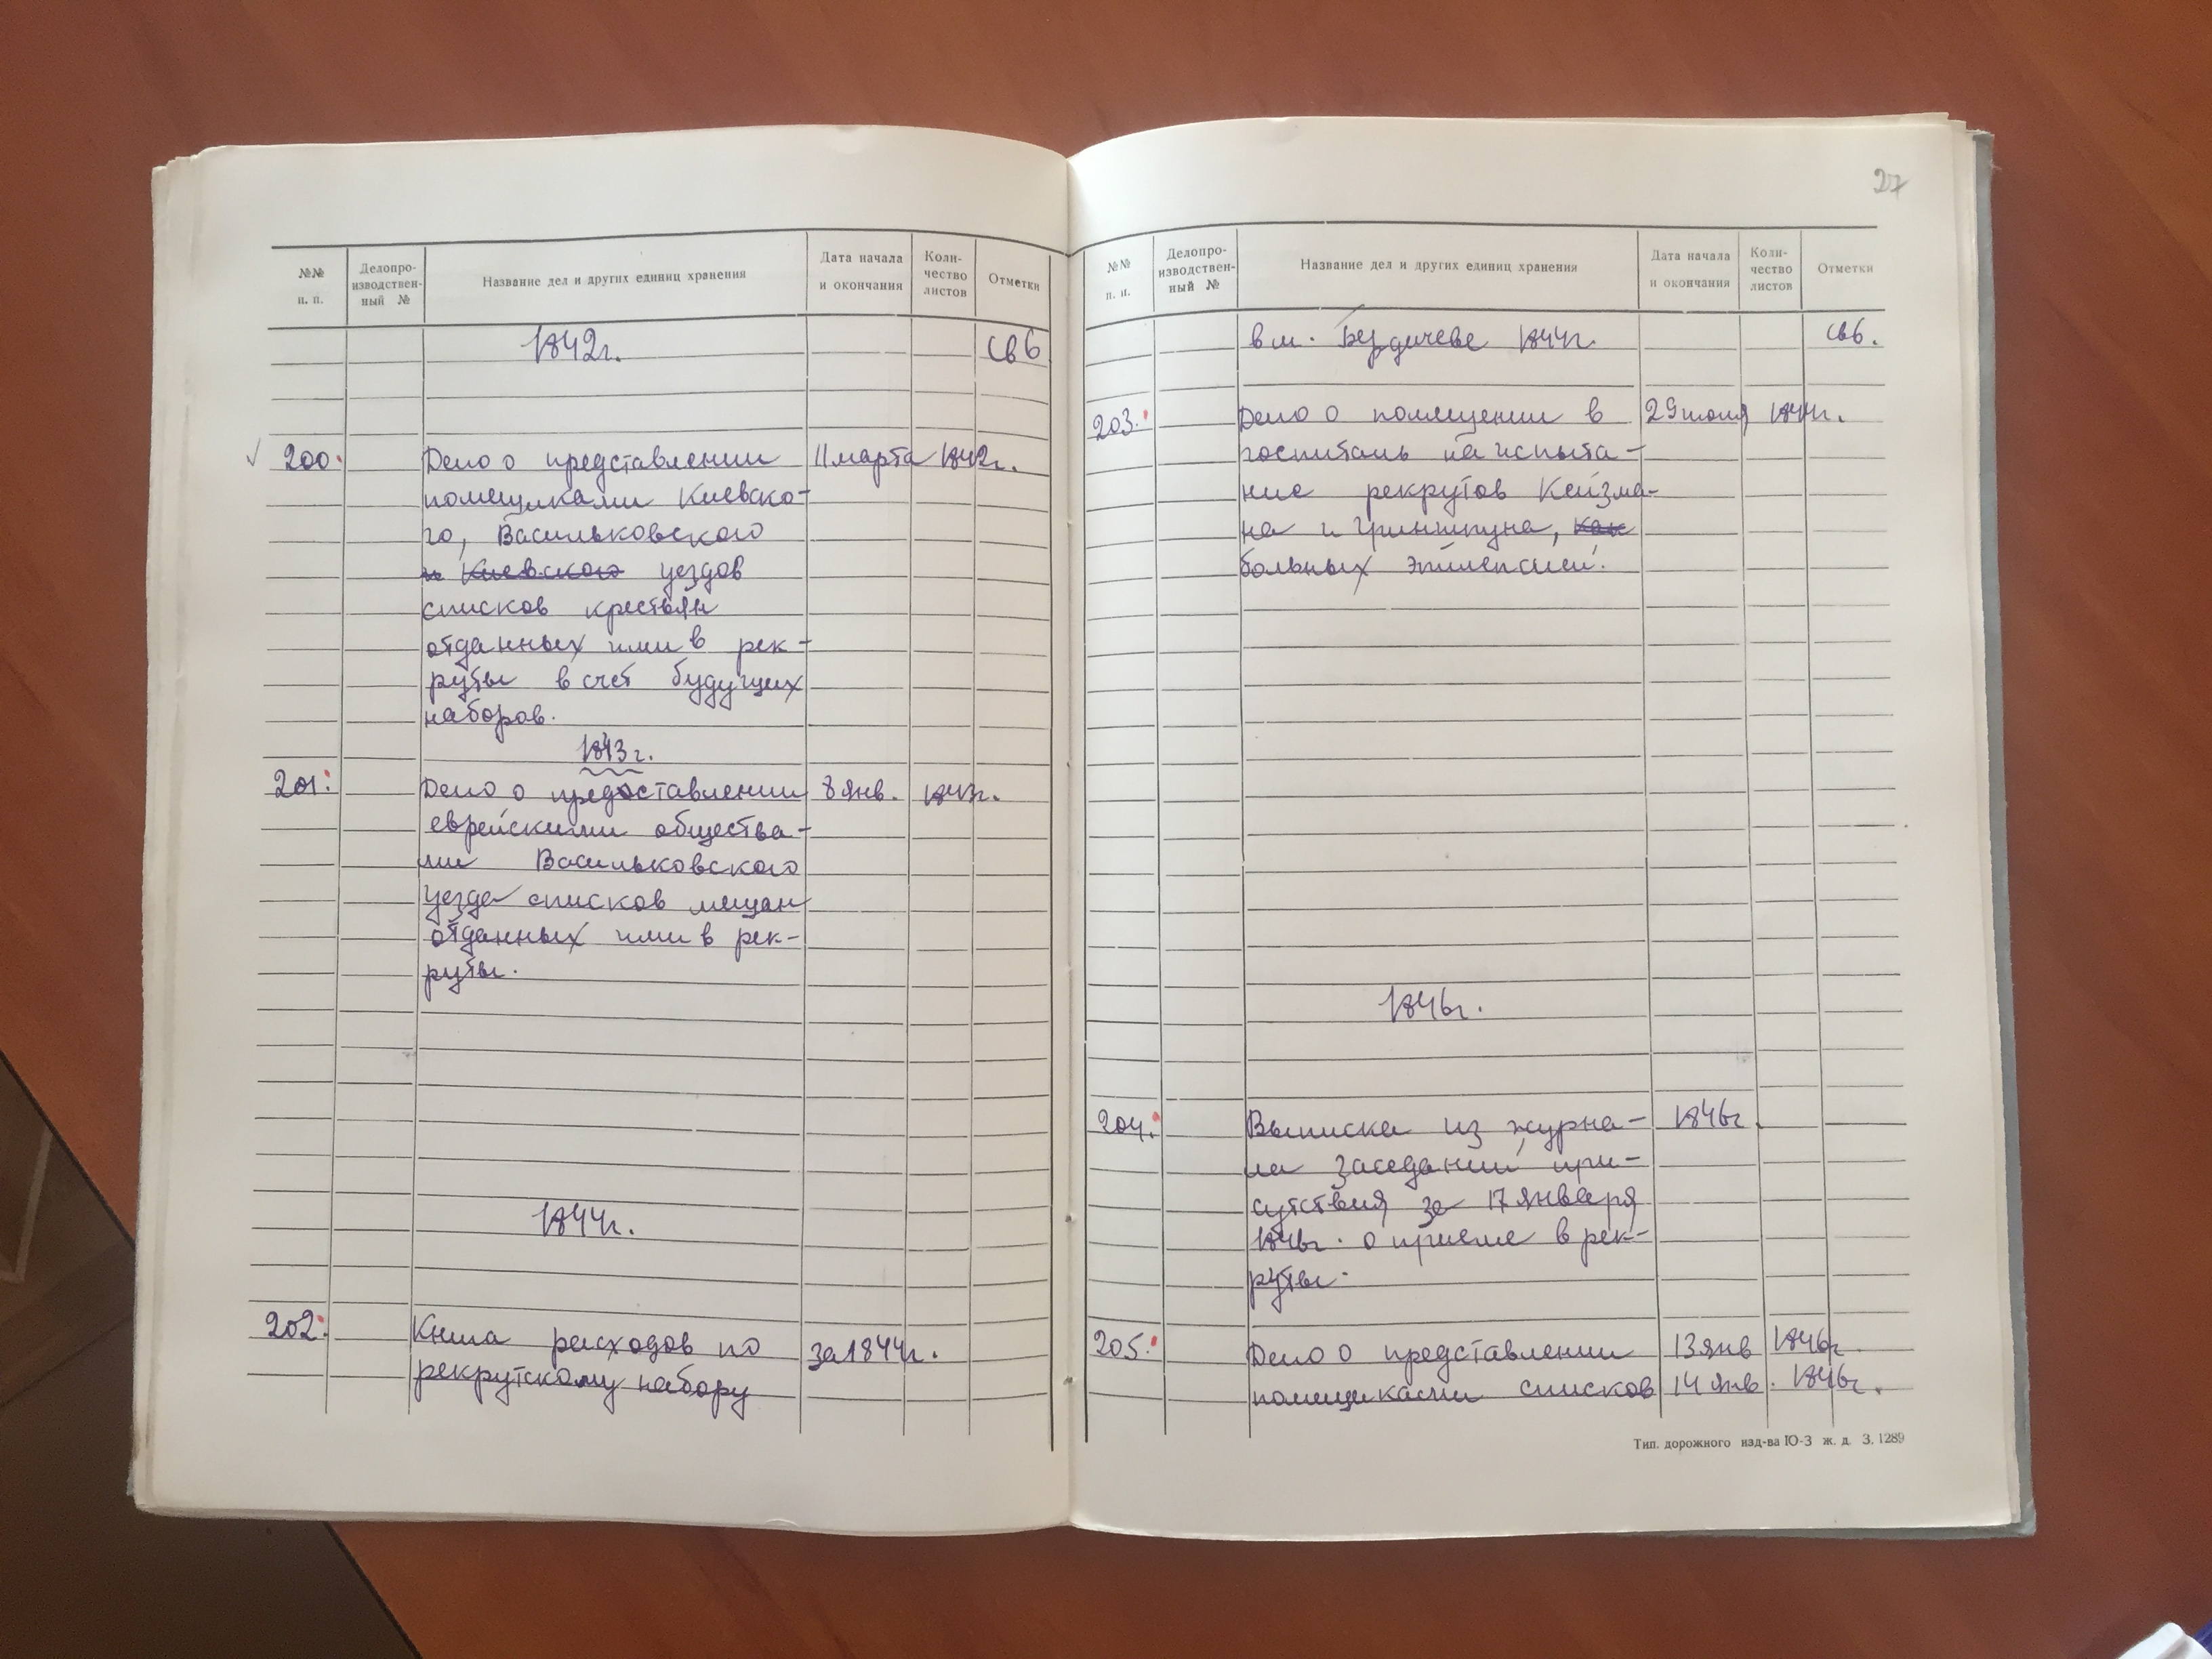 №№ п. п.
Делопро-
изводствен-
ный №
Название дел и других единиц хранения
Дата начала
и окончания
Коли-
чество
листов
Отметки
1842г.
св 6
200.
Дело о представлении
11 марта 1842г.
помещиками Киевско-
го, Васильковского
и Киевского уездов
списков крестьян
отданных ими в рек-
руты в счет будущих
наборов.
1843г.
201.
Дело о предоставлении
8 янв. 1843г.
еврейскими общества-
ми Васильковского
уезда списков мещан
отданных ими в рек-
руты.
1844г.
202.
Книга расходов по
за 1844г.
рекрутскому набору
27
№№ п. п.
Делопро-
изводствен-
ный №
Название дел и других единиц хранения
Дата начала
и окончания
Коли-
чество
листов
Отметки
в м. Бердичеве 1844г.
св 6.
203.
Дело о помещении в
29 июля 1844г.
госпиталь на испыта-
ние рекрутов Кейзма-
на и Гриншпуна, как
больных эпилепсией.
1846г.
204.
Выписка из журна-
1846г.
ла заседаний при-
сутствия за 17 января
1846г. о приеме в рек-
руты.
205.
Дело о представлении
13 янв 1846г.
помещиками списков
14 янв. 1846г.
Тип. дорожного изд-ва Ю-З ж. д. З. 1289